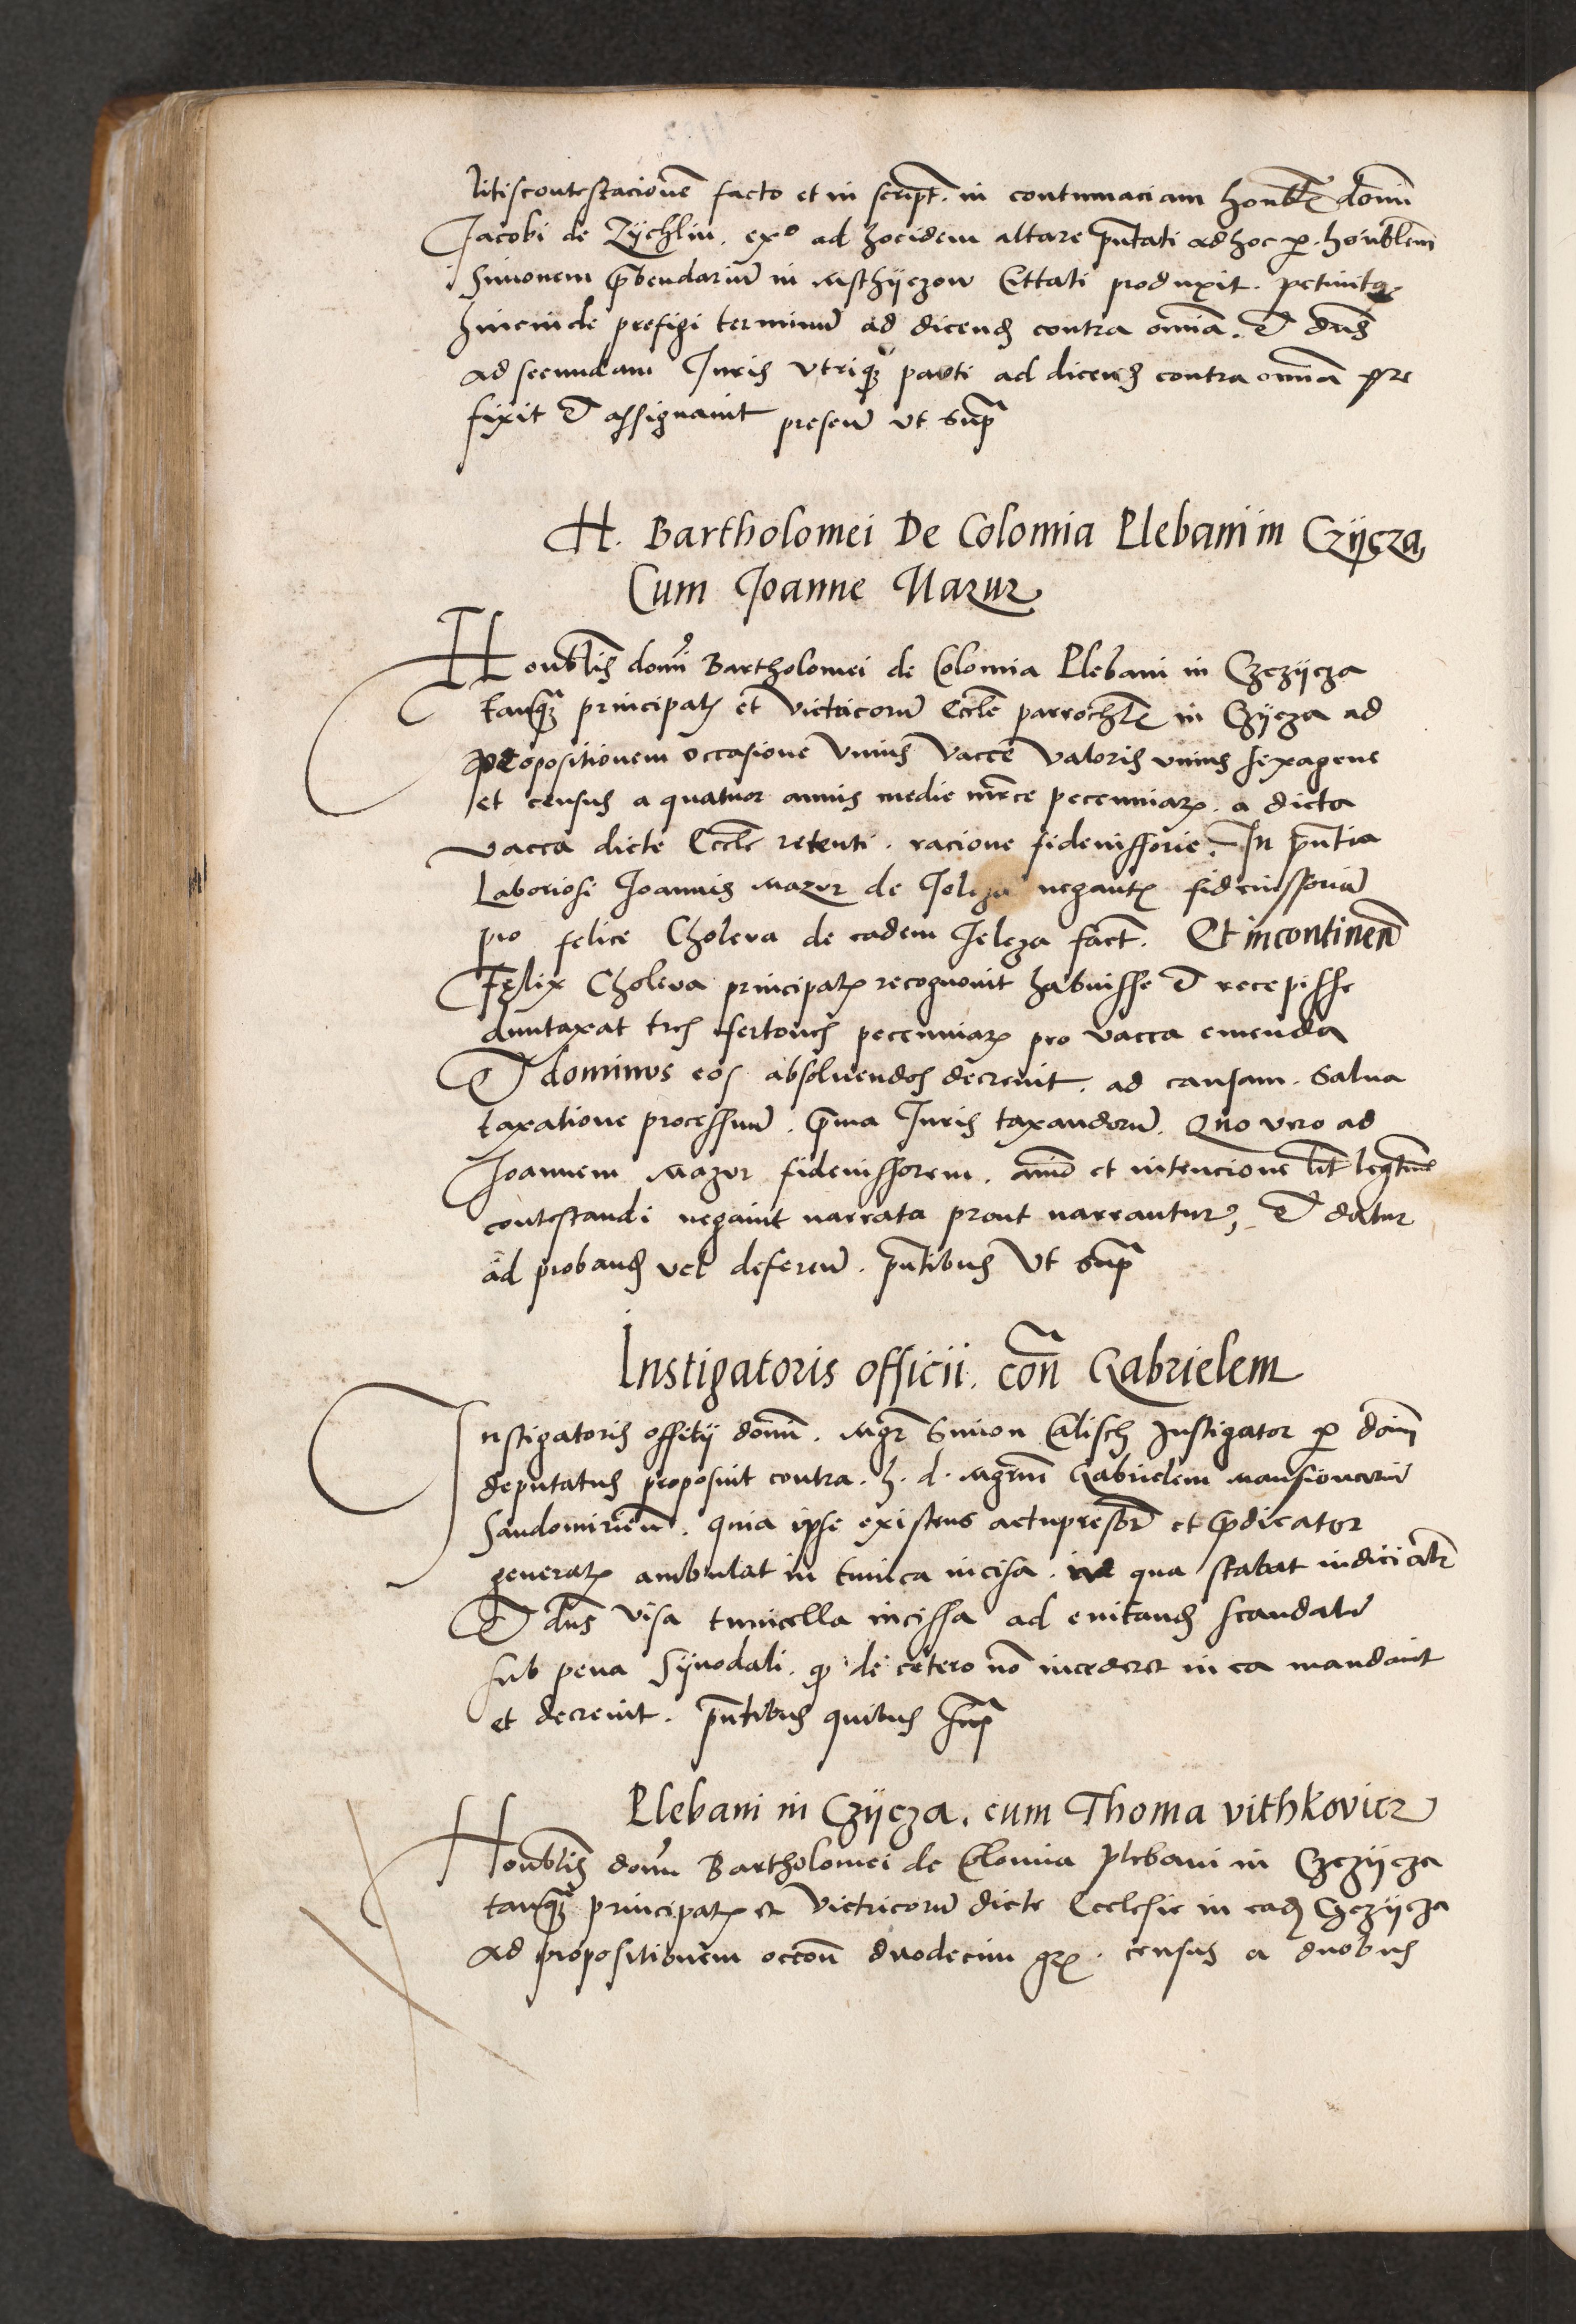 litiscontestacionẽ facto et in script. in contumaciam honbĺ domĩ
Jacobi de Zÿchlin. exº ad hocidem altare p̃ntati ad hoc p. honb̃lem
Simonem p̃bendariũ in Msthÿczow Cittati produxit. petiuitq
hincinde prefigi terminũ ad dicend contra om̃ia. Et dñs
ad secundam Juris vtriq parti ad dicend contra om̃ia pre
fixit Et assignauit presen̄ vt sup̃
H. Bartholomei De Colomia Plebani in Czÿcza
Cum Joanne Mazur
Honb̃lis domĩ Bartholomei de Colomia Plebani in Czczÿcza
tanq̃ principał et victricorũ Eccĺe parrochĺ in Czÿcza ad
propositionem occasione vnius vacce valoris vnius sexagene
et census a quatuor annis medie mr̃ce pecenniar. a dicta
vacca dicte Eccĺe retenti. racione fideiussorie. In p̃ntia
Laboriosi Joannis Mazur de Jelcza negant fideiussoriã
pro felice Choleva de eadem Jelcza fact. Et incontinen̄
Felix Choleva principał recognouit habuisse Et recepisse
duntaxat tres fertones pecenniar pro vacca emenda
Et dominus eos absoluendos decreuit. ad causam. Salua
taxatione processuũ. p̃ma Juris taxandorũ. Quo vero ad
Joannem Mazur fideiussorem. animo et intencione lit̃ legt̃me
contestandi negauit narrata prout narrantur, Et datur
ad proband vel deferen̄. p̃ntibus vt sup̃
Instigatoris officii. con̄ Gabrielem
Instigatoris offitij domĩ. Mgr̃ Simon Calisch Instigator p dom̃
deputatus proposuit contra. h. d. Mgr̃m Gabrielem mansionariũ
Sandomirien̄. quia ipse existens actu presb̃r et p̃dicator
generał ambulat in tunica incisa. in qua stabat iudicialr̃
Et dñs visa tunicella incissa ad euitand scandalũ
sub pena Sÿnodali. q̃ de cetero nõ incederet in ea mandauit
et decreuit. p̃ntibus quibus sup̃
Plebani in Czÿcza. cum Thoma vithkovicz
Honb̃lis domĩ Bartholomei de Colomia plebani in Czczÿcza
tanq̃ principał et victricorũ dicte Ecclesie in ead Czczÿcza
ad propositionem occon̄ duodecim gr. census a duobus